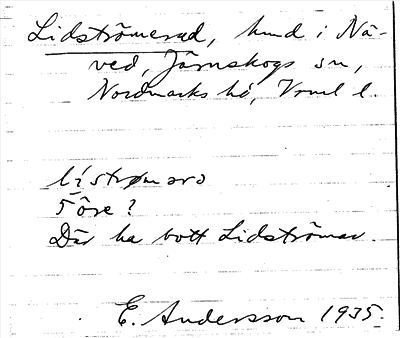 Lidströmerud, hmd i Nä-
ved, Järnskogs sn,
Nordmarks hd, Vrml l.
lístrømərə
5 öre?
Där ha bott Lidströmar.
E. Andersson 1935.